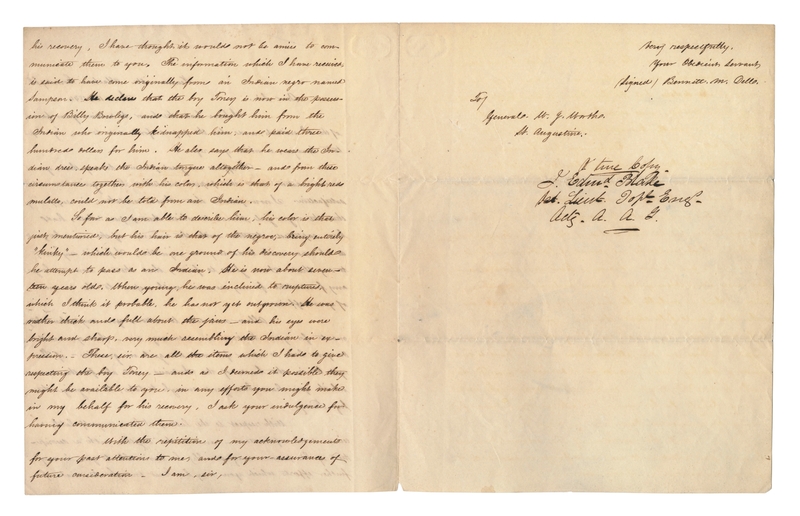 his recovery, I have thought it would not be amiss to com-
municate them to you. The information which I have received
is said to have come originally from an Indian negro named
Sampson. He declares that the boy Toney is now in the posses-
ion of Billy Bowlegs, and that he bought him from the
Indian who originally kidnapped him, and paid three
hundred dollars for him. He also says that he wears the In-
dian dress, speaks the Indian tongue altogether - and from these
circumstances together with his color, which is that of a bright red
mulatto, could not be told from an Indian.
So far as I am able to describe him, his color is that
just mentioned, but his hair is that of the negroe, being entirely
"kinky" - which would be one ground of his discovery should
he attempt to pass as an Indian. He is now about seven-
teen years old. When young, he was inclined to rupture,
which I think it probable, he has not yet outgrown. He was
rather thick and full about the jaws - and his eyes were
bright and sharp, very much resembling the Indian in ex-
pression. - These, sir, are all the items which I had to give
respecting the boy Toney - and as I deemed it possible they
might be available to you, in any efforts you might make
in my behalf for his recovery, I ask your indulgence for
having communicated them.
With the repetition of my acknowledgements
for your past attention to me, and for your assurance of
future consideration - I am, sir,
Very respectfully,
Your Obedient Servant,
(Signed) Bennett M. Dell.
To/
General W. J. Worth
St. Augustine.
A true Copy
J. Edmd Blake
Lieut. Topl. Engs.
Actg. A. A. G.